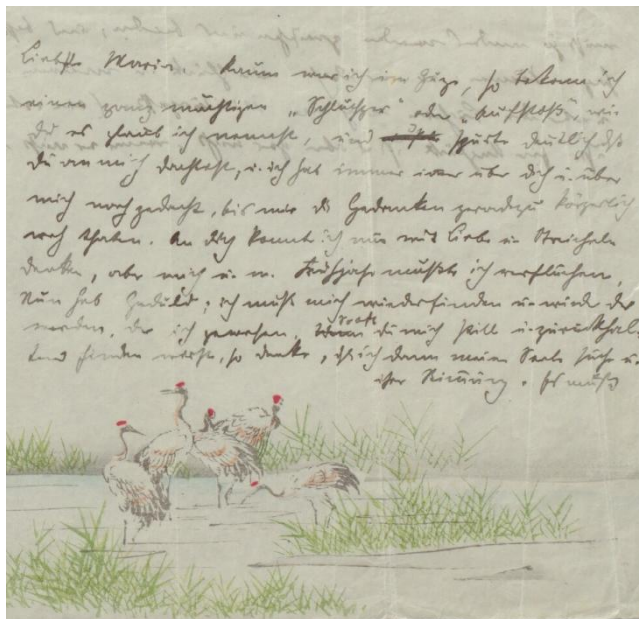 Liebste Maria. Kaum war ich im Zuge, so bekam ich
einen ganz mächtigen „Schluchzer“ oder „Aufstoß“, wie
du es glaub ich nennst, und spürte deutlich daß
du an mich dachtest, u. ich hab immer über dich u. über
mich nachgedacht, bis mir die Gedanken geradezu körperlich
weh thaten. An dich konnt ich nur mit Liebe u. Streicheln
denken, aber mich u. m. Frühjahr mußte ich verfluchen.
Nun hab Geduld; ich muß mich wiederfinden u. wieder der
werden, der ich gewesen, du mich still u. zurückhal-
tend finden wirst, so denke, daß ich dann meine Seele suche u.
ihre Stimmung. Es muß